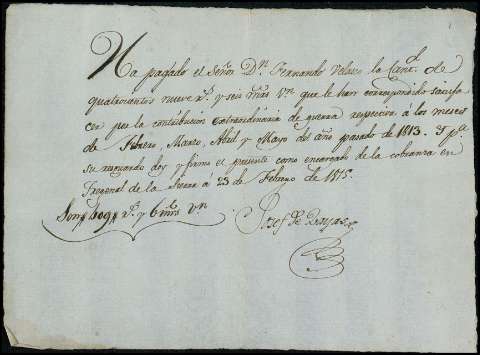 Ha pagado el Señor Dn. Fernando Velasco la Cantd. de
quatrocientos nueve rs. y seis mrs. vn. que le han correspondido satisfa
cer por la contribucion extraordinaria de guerra respectiva á los meses
de Febrero, Marzo, Abril y Mayo del año pasado de 1813. Y pa.
su resguardo doy y firmo el presente como encargado de la cobranza en
Fregenal de la Sierra á 23 de Febrero de 1815.
Son 409 rs. y 6 mrs. vn.
Josef de